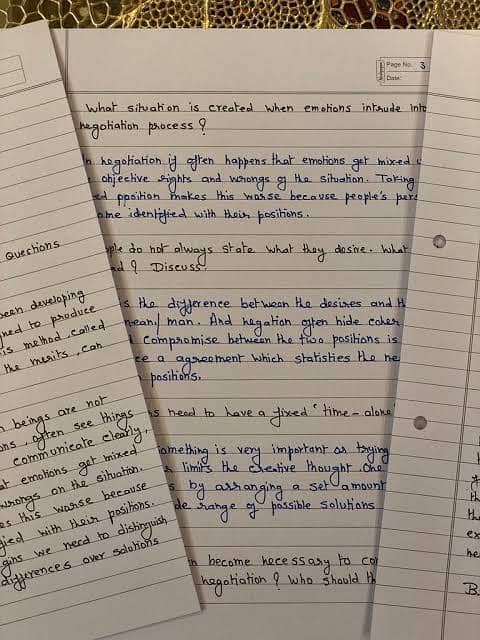 Page No. 3
Date:
What situation is created when emotions intrude into
negotiation process?
negotiation it often happens that emotions get mixed
objective rights and wrongs of the situation. Taking
position makes this worse because people's
identified with their positions.
do not always state what they desire. What
? Discuss.
the difference between the desires and
mean/man. And negation often hide
compromise between the two positions is
a agreement which statisties the
positions.
need to have a fixed "time-alone
something is very important as trying
limits the creative thought. One
by arranging a set amount
range of possible solutions
become necessary to
negotiation? Who should
Questions
been developing
to produce
is method called
the merits, can
beings are not
often see things
communicate clearly,
emotions get mixed
wrongs on the situation.
this worse because
with their positions.
we need to distinguish
differences over solutions
B.